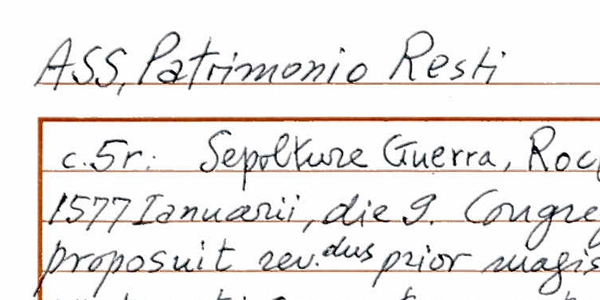 ASS, Patrimonio Resti
c.5r: Sepolture Guerra,
1577 Ianuarii, die 9.
proposuit rev.dus prior